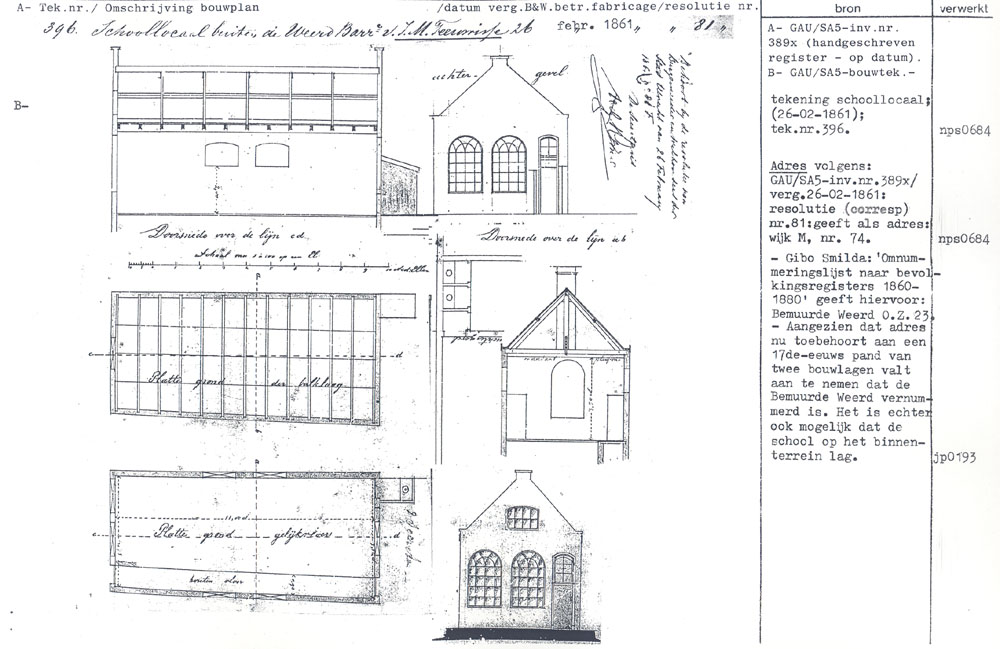 A- Tek.nr./ Omschrijving bouwplan /datum verg.B&W.betr.fabricage/resolutie nr.
bron
verwerkt
396. Schoollocaal buiten de Weerd Barr. 26 febr. 1861, " " 81 "
A- GAU/SA5-inv.nr.
389x (handgeschreven
register - op datum).
B- GAU/SA5-bouwtek.-
B-
achter- gevel
tekening schoollocaal;
(26-02-1861);
tek.nr.396.
nps0684
Adres volgens:
GAU/SA5-inv.nr.389x/
verg.26-02-1861:
resolutie (corresp)
nr.81:geeft als adres:
wijk M, nr. 74.
nps0684
- Gibo Smilda: 'Omnum-
meringslijst naar bevol-
kingsregisters 1860-
1880' geeft hiervoor:
Bemuurde Weerd O.Z.23.
- Aangezien dat adres
nu toebehoort aan een
17de-eeuws pand van
twee bouwlagen valt
aan te nemen dat de
Bemuurde Weerd vernum-
merd is. Het is echter
ook mogelijk dat de
school op het binnen-
terrein lag.
jp0193
Doorsnede over de lijn cd.
Doorsnede over de lijn ab
Schaal van 1 à 100
c d
Platte grond der balklaag
Platte grond gelijkvloers
c d
houten vloer